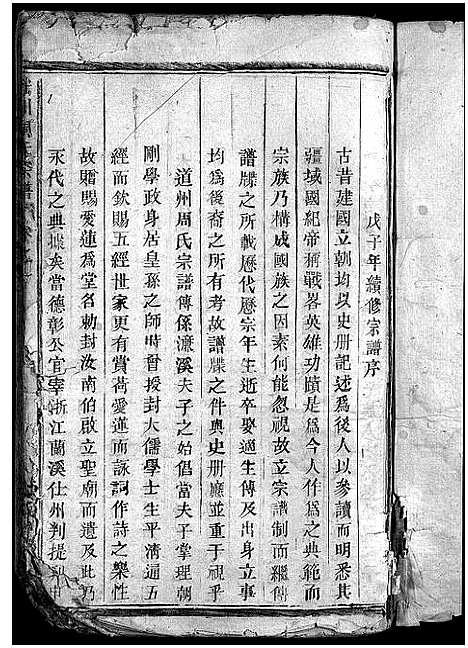 戊子年續修宗譜序
古昔建國立朝均以史册記述爲後人以參讀而明悉其
疆域國紀帝猷戰畧英雄功蹟是爲今人作爲之典範而
宗族乃構成國族之因素何能忽視故立宗譜制而繼傳
譜牒之所載歷代歷宗年生逝卒娶適生傳及出身立事
均爲後裔之所有考故譜牒之件與史册應並重于視乎
道州周氏宗譜傳係濂溪夫子之始倡當夫子掌理朝
剛學政身居皇孫之師時曾授封大儒學士生平清通五
經而欽賜五經世家更有賞荷愛蓮而詠詞作詩之樂性
故贈賜愛蓮爲堂名勅封汝南伯啟立聖廟而遺及此乃
永代之典據矣當德彰公官宰浙江蘭溪仕州判提